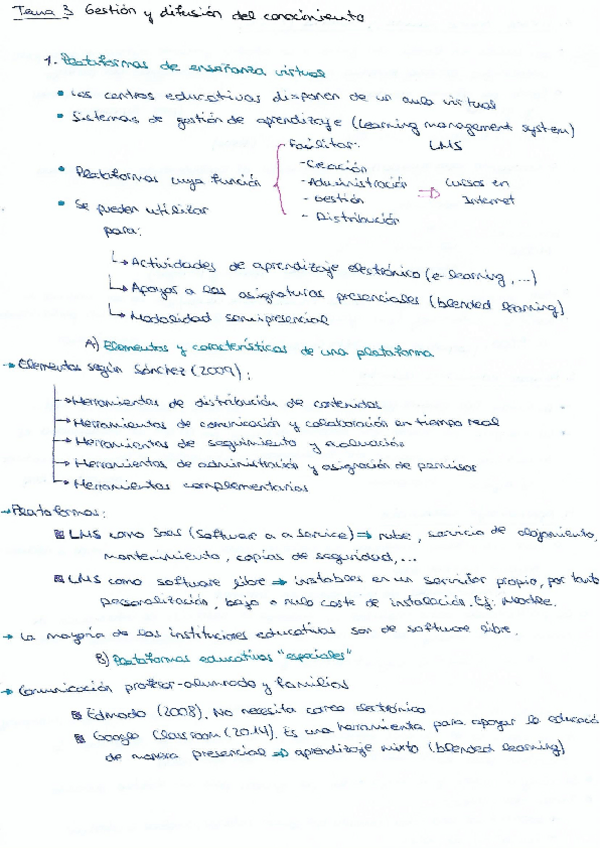 Tema 3 Gestión y difusión del conocimiento
1. Plataformas de enseñanza virtual
• Los centros educativos disponen de un aula virtual
• Sistemas de gestión de aprendizaje (Learning management system)
LMS
• Plataformas cuya función
Facilitar:
- Creación
- Administración
- Gestión
- Distribución
⇒ Cursos en
Internet
• Se pueden utilizar
para:
↳ Actividades de aprendizaje electrónico (e-learning, ...)
↳ Apoyos a las asignaturas presenciales (blended learning)
↳ Modalidad semipresencial
A) Elementos y características de una plataforma
→ Elementos según Sánchez (2009):
→ Herramientas de distribución de contenidos
→ Herramientas de comunicación y colaboración en tiempo real
→ Herramientas de seguimiento y evaluación
→ Herramientas de administración y asignación de permisos
→ Herramientas complementarias
→ Plataformas:
LMS como Saas (Software a a service) ⇒ nube, servicio de alojamiento,
mantenimiento, copias de seguridad, ...
LMS como software libre ⇒ instables en un servidor propio, por tanto
personalización, bajo o nulo coste de instalación. Ej: Moodle.
→ La mayoría de las instituciones educativas son de software libre.
B) Plataformas educativas "especiales"
→ Comunicación profesor-alumnado y familias
Edmodo (2008). No necesita correo electrónico
Google Classroom (2014). Es una herramienta para apoyar la educació
de manera presencial ⇒ aprendizaje mixto (blended learning)